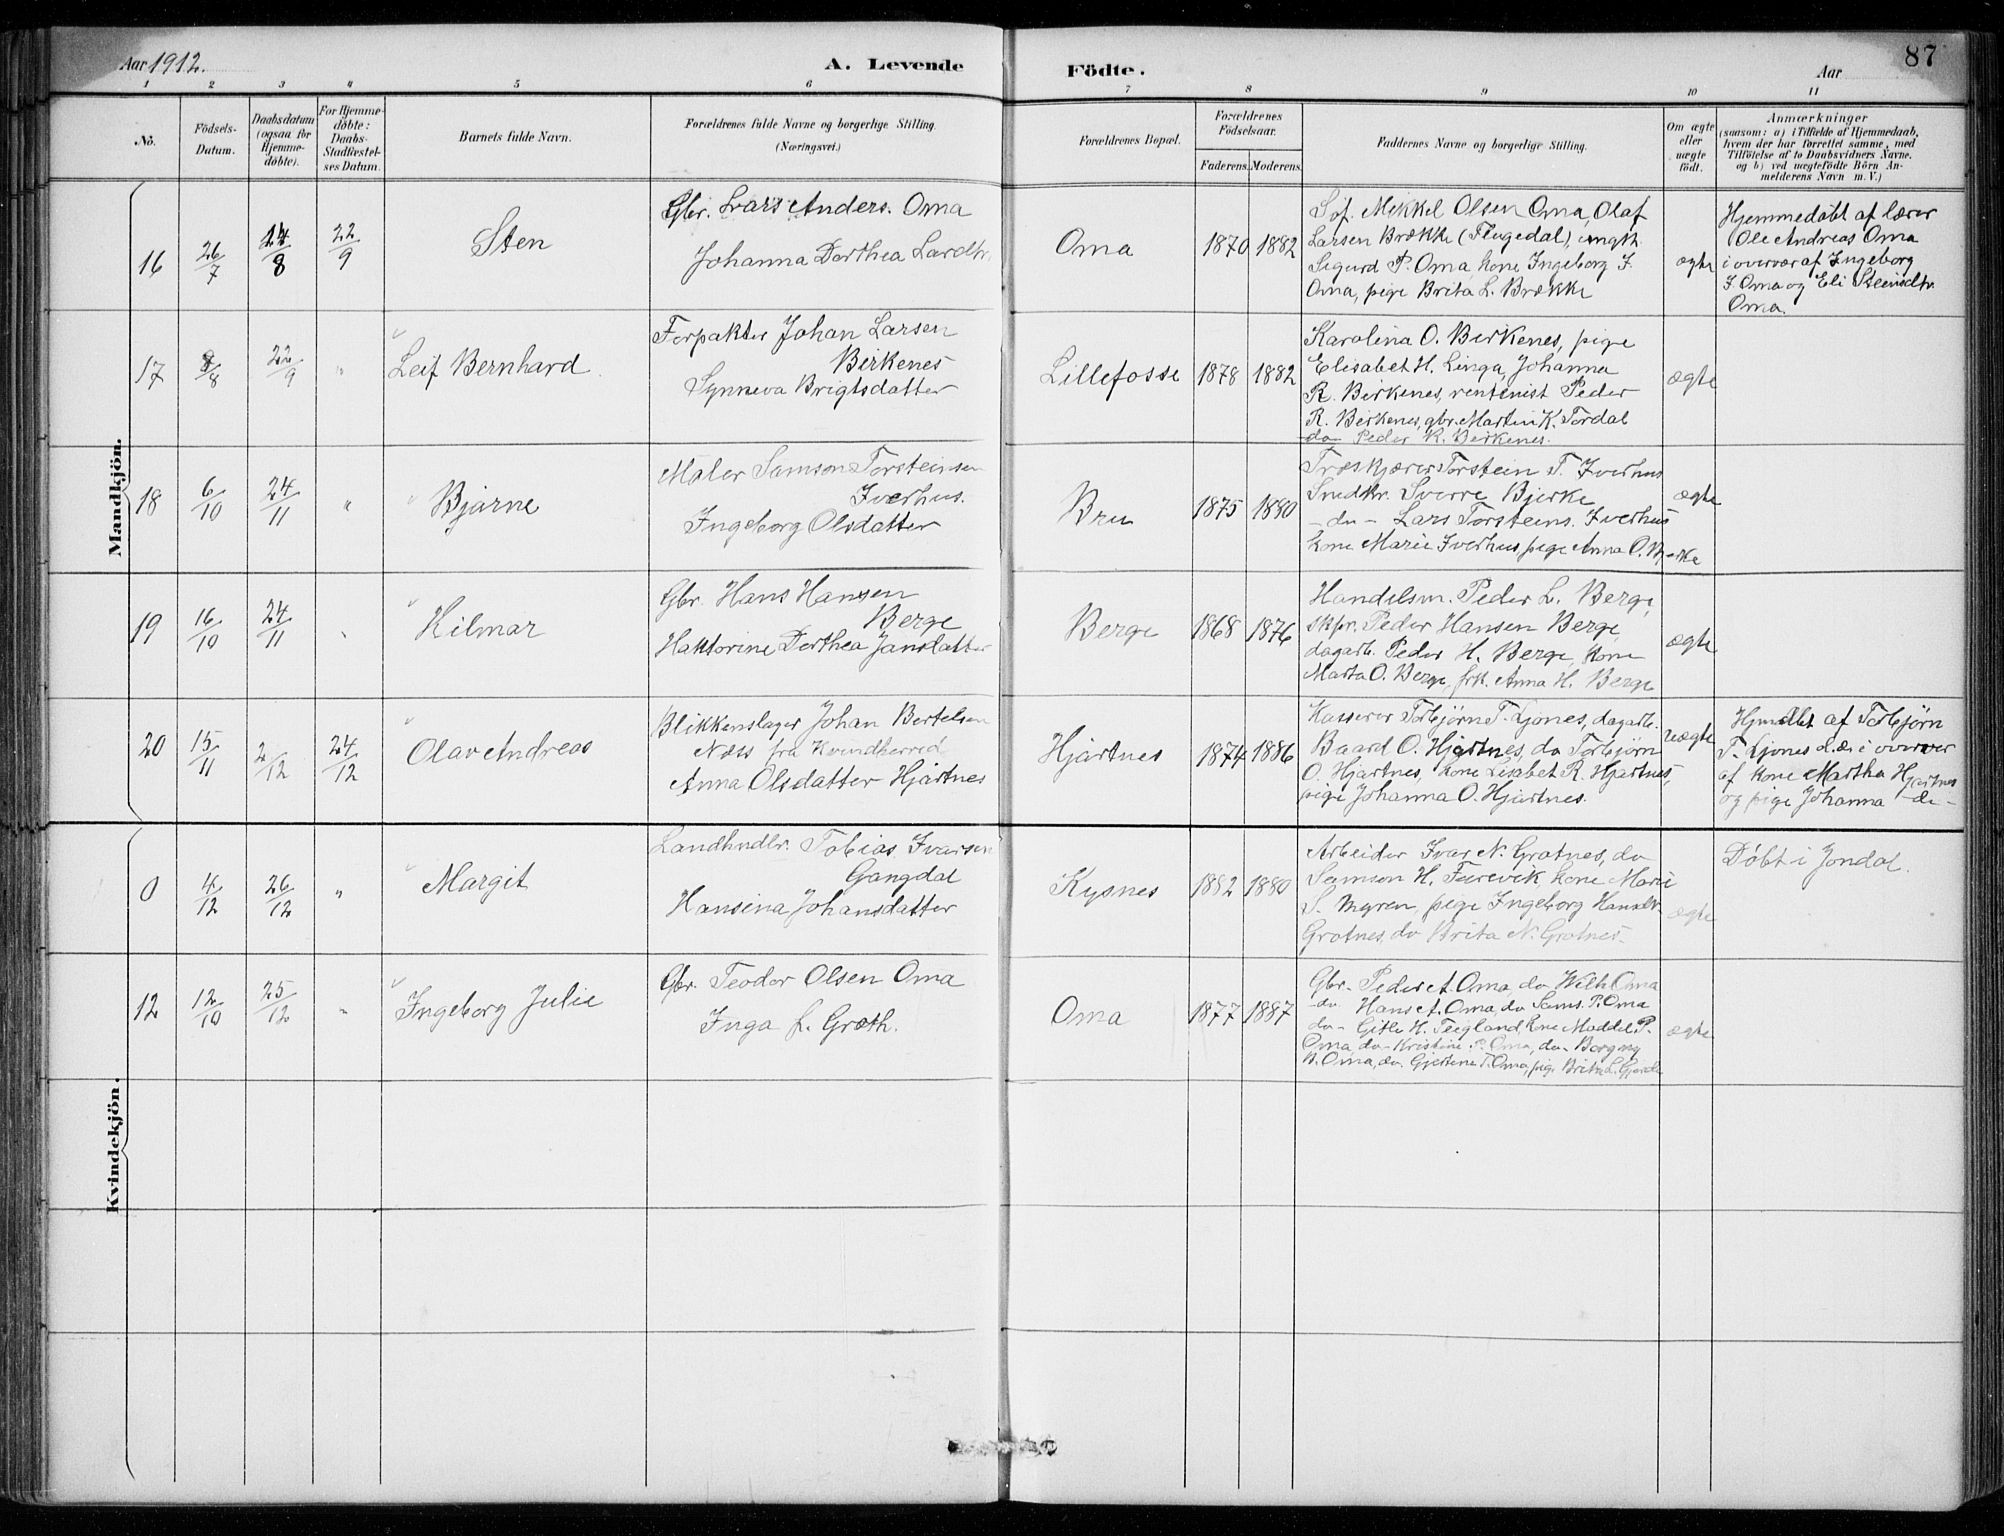 Aar 1912.
A. Levende
Födte.
Aar
87
1 2 3 4 5 6 7 8 9 10 11
No.
Födsels-
Datum.
Daabsdatum
(ogsaa for
Hjemme-
döbte).
For Hjemme-
döbte:
Daabs-
Stadfæstel-
ses Datum.
Barnets fulde Navn.
Forældrenes fulde Navne og borgerlige Stilling.
(Næringsvei.)
Forældrenes Bopæl.
Forældrenes
Födselsaar.
Faderens. Moderens.
Faddernes Navne og borgerlige Stilling.
Om ægte
eller
uægte
födt.
Anmærkninger
(saasom: a) i Tilfælde af Hjemmedaab,
hvem der har forrettet samme, med
Tilföielse af to Daabsvidners Navne.
og b) ved uægtefödte Börn An-
melderens Navn m. V.)
Mandkjön.
16
26/7
14/8
22/9
Sten
Gbr. Lars Anders. Oma
Johanna Dorthea Lardtr.
Oma
1870 1882
Sof. Mekkel Olsen Oma, Olaf
Larsen Brække (Flugedal), ungk.
Sigurd P. Oma kone Ingeborg J.
Oma, pige Brita L. Brække
ægte
Hjemmedøbt af lærer
Ole Andreas Oma
i overvær af Ingeborg
J. Oma og Eli Steinsdtr.
Oma.
17
8/8
22/9
"
Leif Bernhard
Forpakter Johan Larsen
Birkenes
Synneva Brigtsdatter
Lillefosse
1878 1882
Karolina O. Birkenes, pige
Elisabet H. Linga, Johanna
R. Birkenes, rentenist Peder
R. Birkenes, gbr. Martin K. Tordal
do Peder K. Birkenes.
ægte
18
6/10
24/11
"
Bjarne
Maler Samson Torsteinsen
Iverhus.
Ingeborg Olsdatter
Bru
1875 1880
Træskjærer Torstein T. Iverhus
Snedkr. Sverre Bjerke
- do - Lars Torsteins. Iverhus
kone Marie Iverhus, pige Anna O. Bjerke
ægte
19
16/10
24/11
"
Hilmar
Gbr. Hans Hansen
Berge
Haktorine Dorthea Jansdatter
Berge
1868 1876
Handelsm. Peder L. Berge,
skpr. Peder Hansen Berge
dagarb. Peder H. Berge, kone
Marta O. Berge, frk. Anna H. Berge
ægte
20
15/11
2/12
24/12
Olav Andreas
Blikkenslager Johan Bertelsen
Næss fra Kvindherred
Anna Olsdatter Hjartnes
Hjartnes
1874 1886
Kasserer Torbjørn T. Ljones, dagarb.
Baard O. Hjartnes, do Torbjørn
O. Hjartnes, kone Lisabet R. Hjartnes,
pige Johanna O. Hjartnes.
uægte
Hjmdbt af Torbjørn
T. Ljones d.æ. i overvær
af kone Martha Hjartnes
og pige Johanna -do-
Kvindekjön.
0
4/12
26/12
"
Margit
Landhndlr. Tobias Ivarsen
Gangdal
Hansina Johansdatter
Kysnes
1882 1880
Arbeider Ivar N. Grotnes, do
Samson H. Furevik kone Marie
S. Myren, pige Ingeborg Hansdtr
Grotnes, do Brita N. Grotnes
ægte
Døbt i Jondal.
12
12/10
25/12
"
Ingeborg Julie
Gbr. Teodor Olsen Oma
Inga f. Groth.
Oma
1877 1887
Gbr. Peder A. Oma, do Wilh Oma
-do- Hans A. Oma, do Sams. P. Oma
do- Gitle H. Teigland, kone Maddel P.
Oma, do- Kristine P. Oma, do- Borgny
B. Oma, do Gjertine T. Oma, pige Brita L. Gjerde
ægte